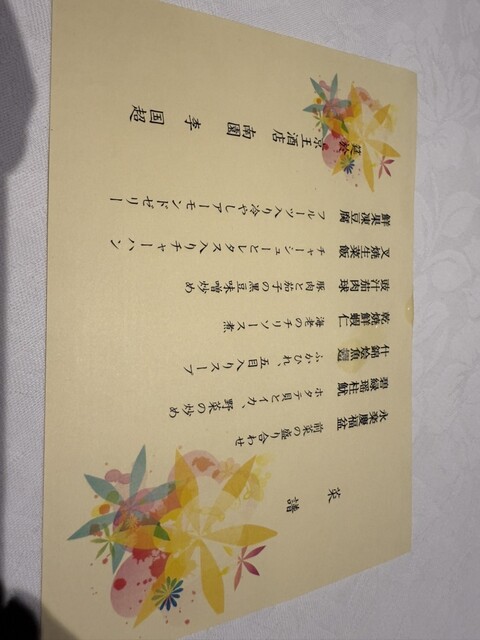 菜譜
永楽慶福盆
前菜の盛り合わせ
碧緑瑶柱魷
ホタテ貝とイカ、野菜の炒め
什錦燴魚翅
ふかひれ、五目入りスープ
乾焼鮮蝦仁
海老のチリソース煮
豉汁茄肉球
豚肉と茄子の黒豆味噌炒め
叉焼生菜飯
チャーシューとレタス入りチャーハン
鮮果凍豆腐
フルーツ入り冷やしアーモンドゼリー
筵於
京王酒店
南園
李国超